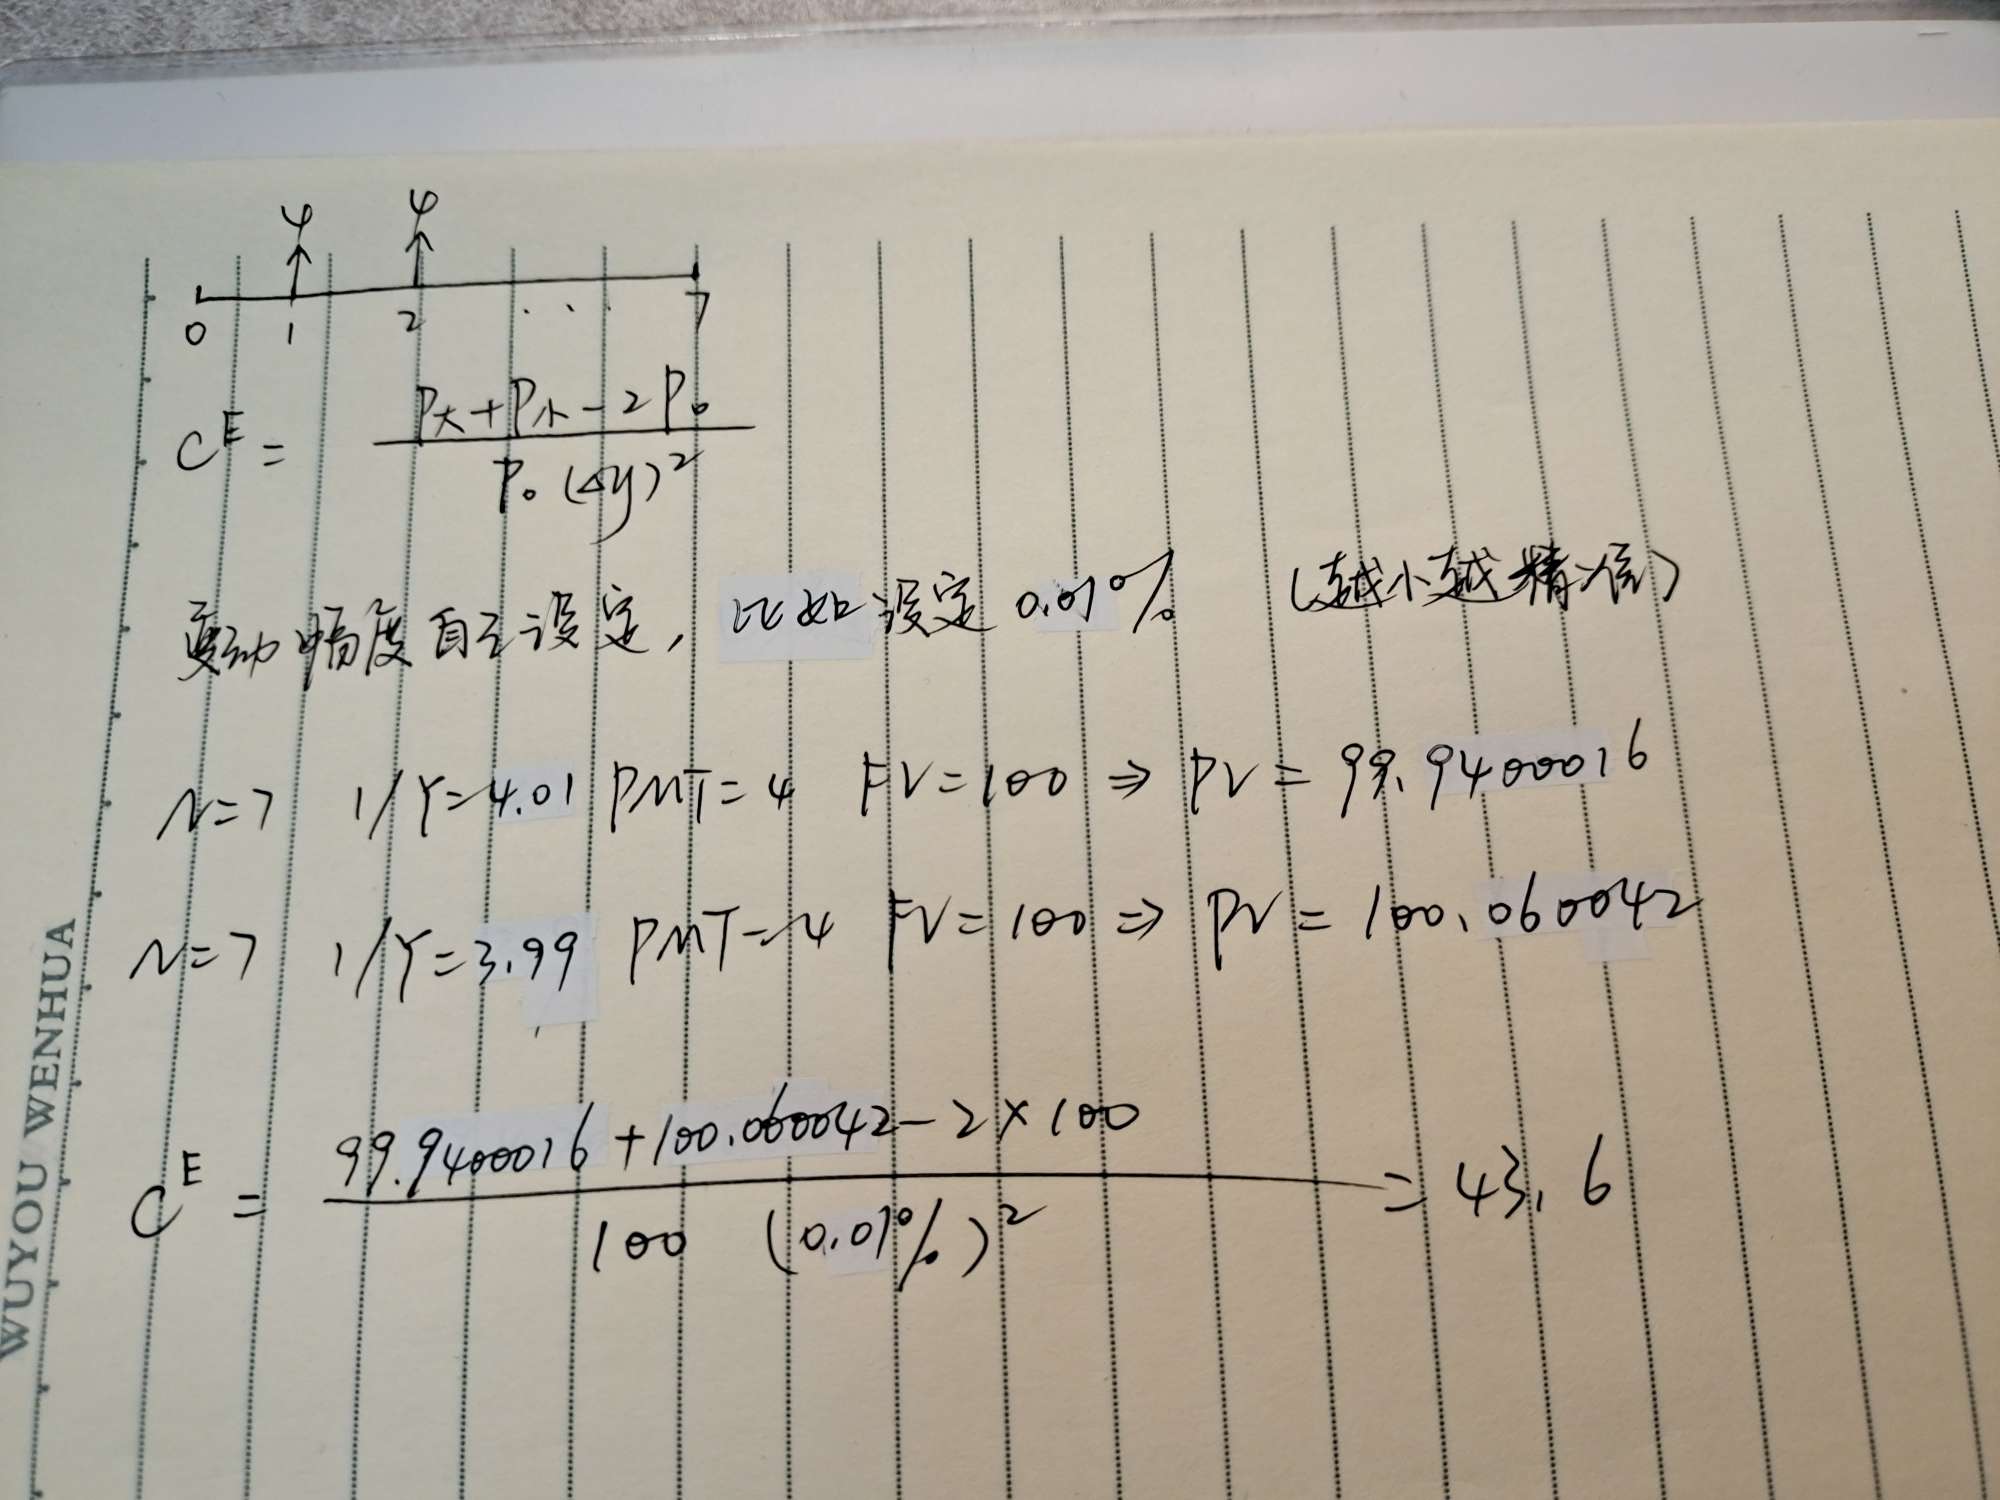 4 4
0 1 2 ... 7
C^E = (P大 + P小 - 2P₀) / (P₀ (Δy)²)
变动幅度自主设定, 比如设定 0.01% (越小越精准)
N=7 I/Y=4.01 PMT=4 FV=100 ⇒ PV=99.9400016
N=7 I/Y=3.99 PMT=4 FV=100 ⇒ PV=100.060042
C^E = (99.9400016 + 100.060042 - 2×100) / (100 (0.01%)²) = 43.6
WUYOU WENHUA